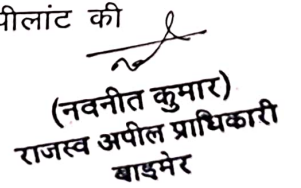 पीलांट की
(नवनीत कुमार)
राजस्व अपील प्राधिकारी
बाड़मेर